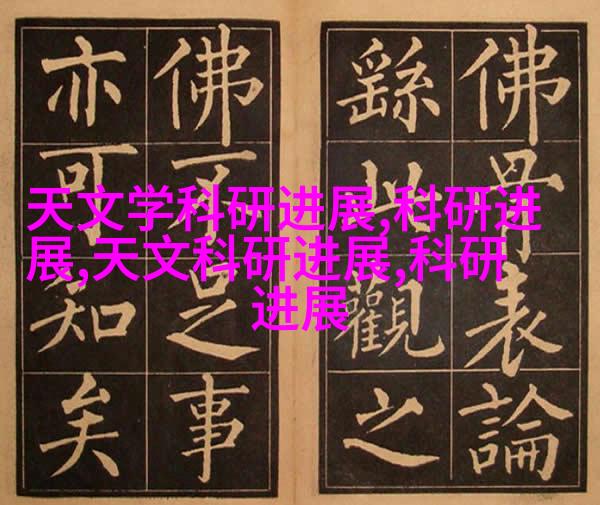 佛骨表論
繇此觀之
佛不足事
亦可知矣
天文学科研进展,科研进
展,天文科研进展,科研
进展